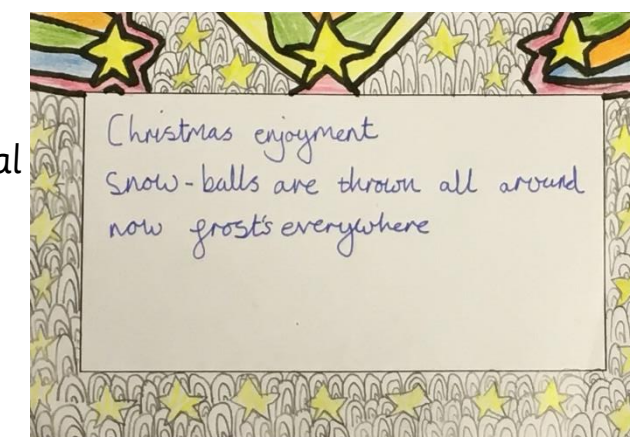 al
Christmas enjoyment
Snow-balls are thrown all around
now frost's everywhere